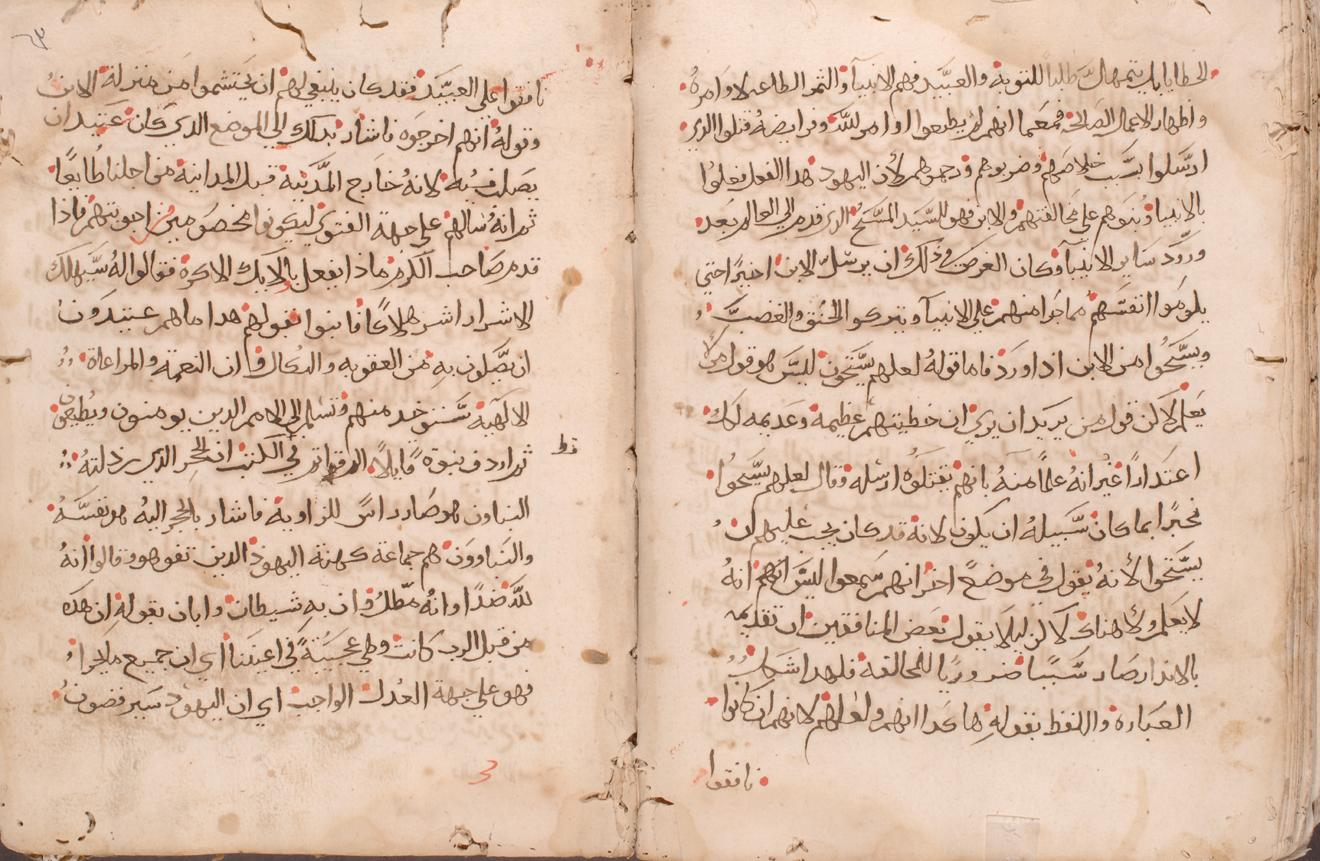 الخطايا بل يتمهل طلبا للتوبة والعبيد فهم الانبيآ والثمر الطاعه لاوامره
واظهار الاعمال الصالحة فمعما انهم لم يطيعوا اوامر للّه وفرايضه قتلوا الذي
ارسلوا بسبب خلاصهم وضربوهم ورجموهم لأن اليهود هذا الفعل فعلوا
بالانبيا وبنوهم على مخالفتهم والابن فهو السيد المسيح الذي قدم الى العالم بعد
ورود ساير الانبيآ وكان الغرض في ذلك ان يرسل الابن اخيرًا حتي
يلوموا انفسهم مما جرا منهم على الانبيآ ويتركوا الحنق والغضب
ويستحوا من الابن اذا ورد فاما قوله لعلهم يستحون ليس هو قول من لا
يعلم لاكن قول من يريد ان يري ان خطيتهم عظيمة وعديمه لك
اعتدادًا غير انه علمًا منه بانهم يقتلوه ارسله وقال لعلهم يستحوا
مخبرًا بما كان سبيله ان يكون لانه قد كان يجب عليهم ان
يستحوا لأنه يقول في موضع اخر انهم سمعوا ليس انهم انه
لا يعلم ولا هناك لاكن ليلا يقول بعض المنافقين ان تقديمه
بالانذار صار سببًا ضروريًا للمخالفه فلهذا شكل
العباره واللفظ بقوله هاكذا انهم ولعلهم لانهم ان كانوا
نافقوا
نافقوا على العبيد فقد كان ينبغي لهم ان يحتشموا من منزلة الابن
وقوله انهم اخرجوه فاشار بذلك الى الموضع الذي كان عتيد ان
يصلب به لانه خارج المدينة قبل المدانية من اجلنا طايعًا
ثم انه سالهم على جهة الفتوي ليكونوا مخصومين من اجوبتهم فاذا
قدم صاحب الكرم ماذا يفعل باولايك الاكرة فقالوا له سيهلك
الاشرار اشر هلاكًا فابنوا بقولهم هذا ما هم عتيدون
ان يصلون به من العقوبه والنكال وان النعمة والمراعاة
الالاهية ستوخد منهم وتشمل الى الامم الذين يومنون ويُطيعون
قط
ثم اردف بنوة قايلًا اما قراتم في الكتب ان الحجر الذي رذلته
البناون هو صار راس للزاوية فاشار بالحجر اليه هو نفسه
والبناوون هم جماعة كهنة اليهود الذين تفوهوا وقالوا انه
للّه ضدًا وانه مطلل وان به شيطان وابان بقوله ان هذه
من قبل الرب كانت وهي عجيبةً في اعيننا اي ان جميع ماجرا
فهو على جهة العدل الواجب اي ان اليهود سيرفضون